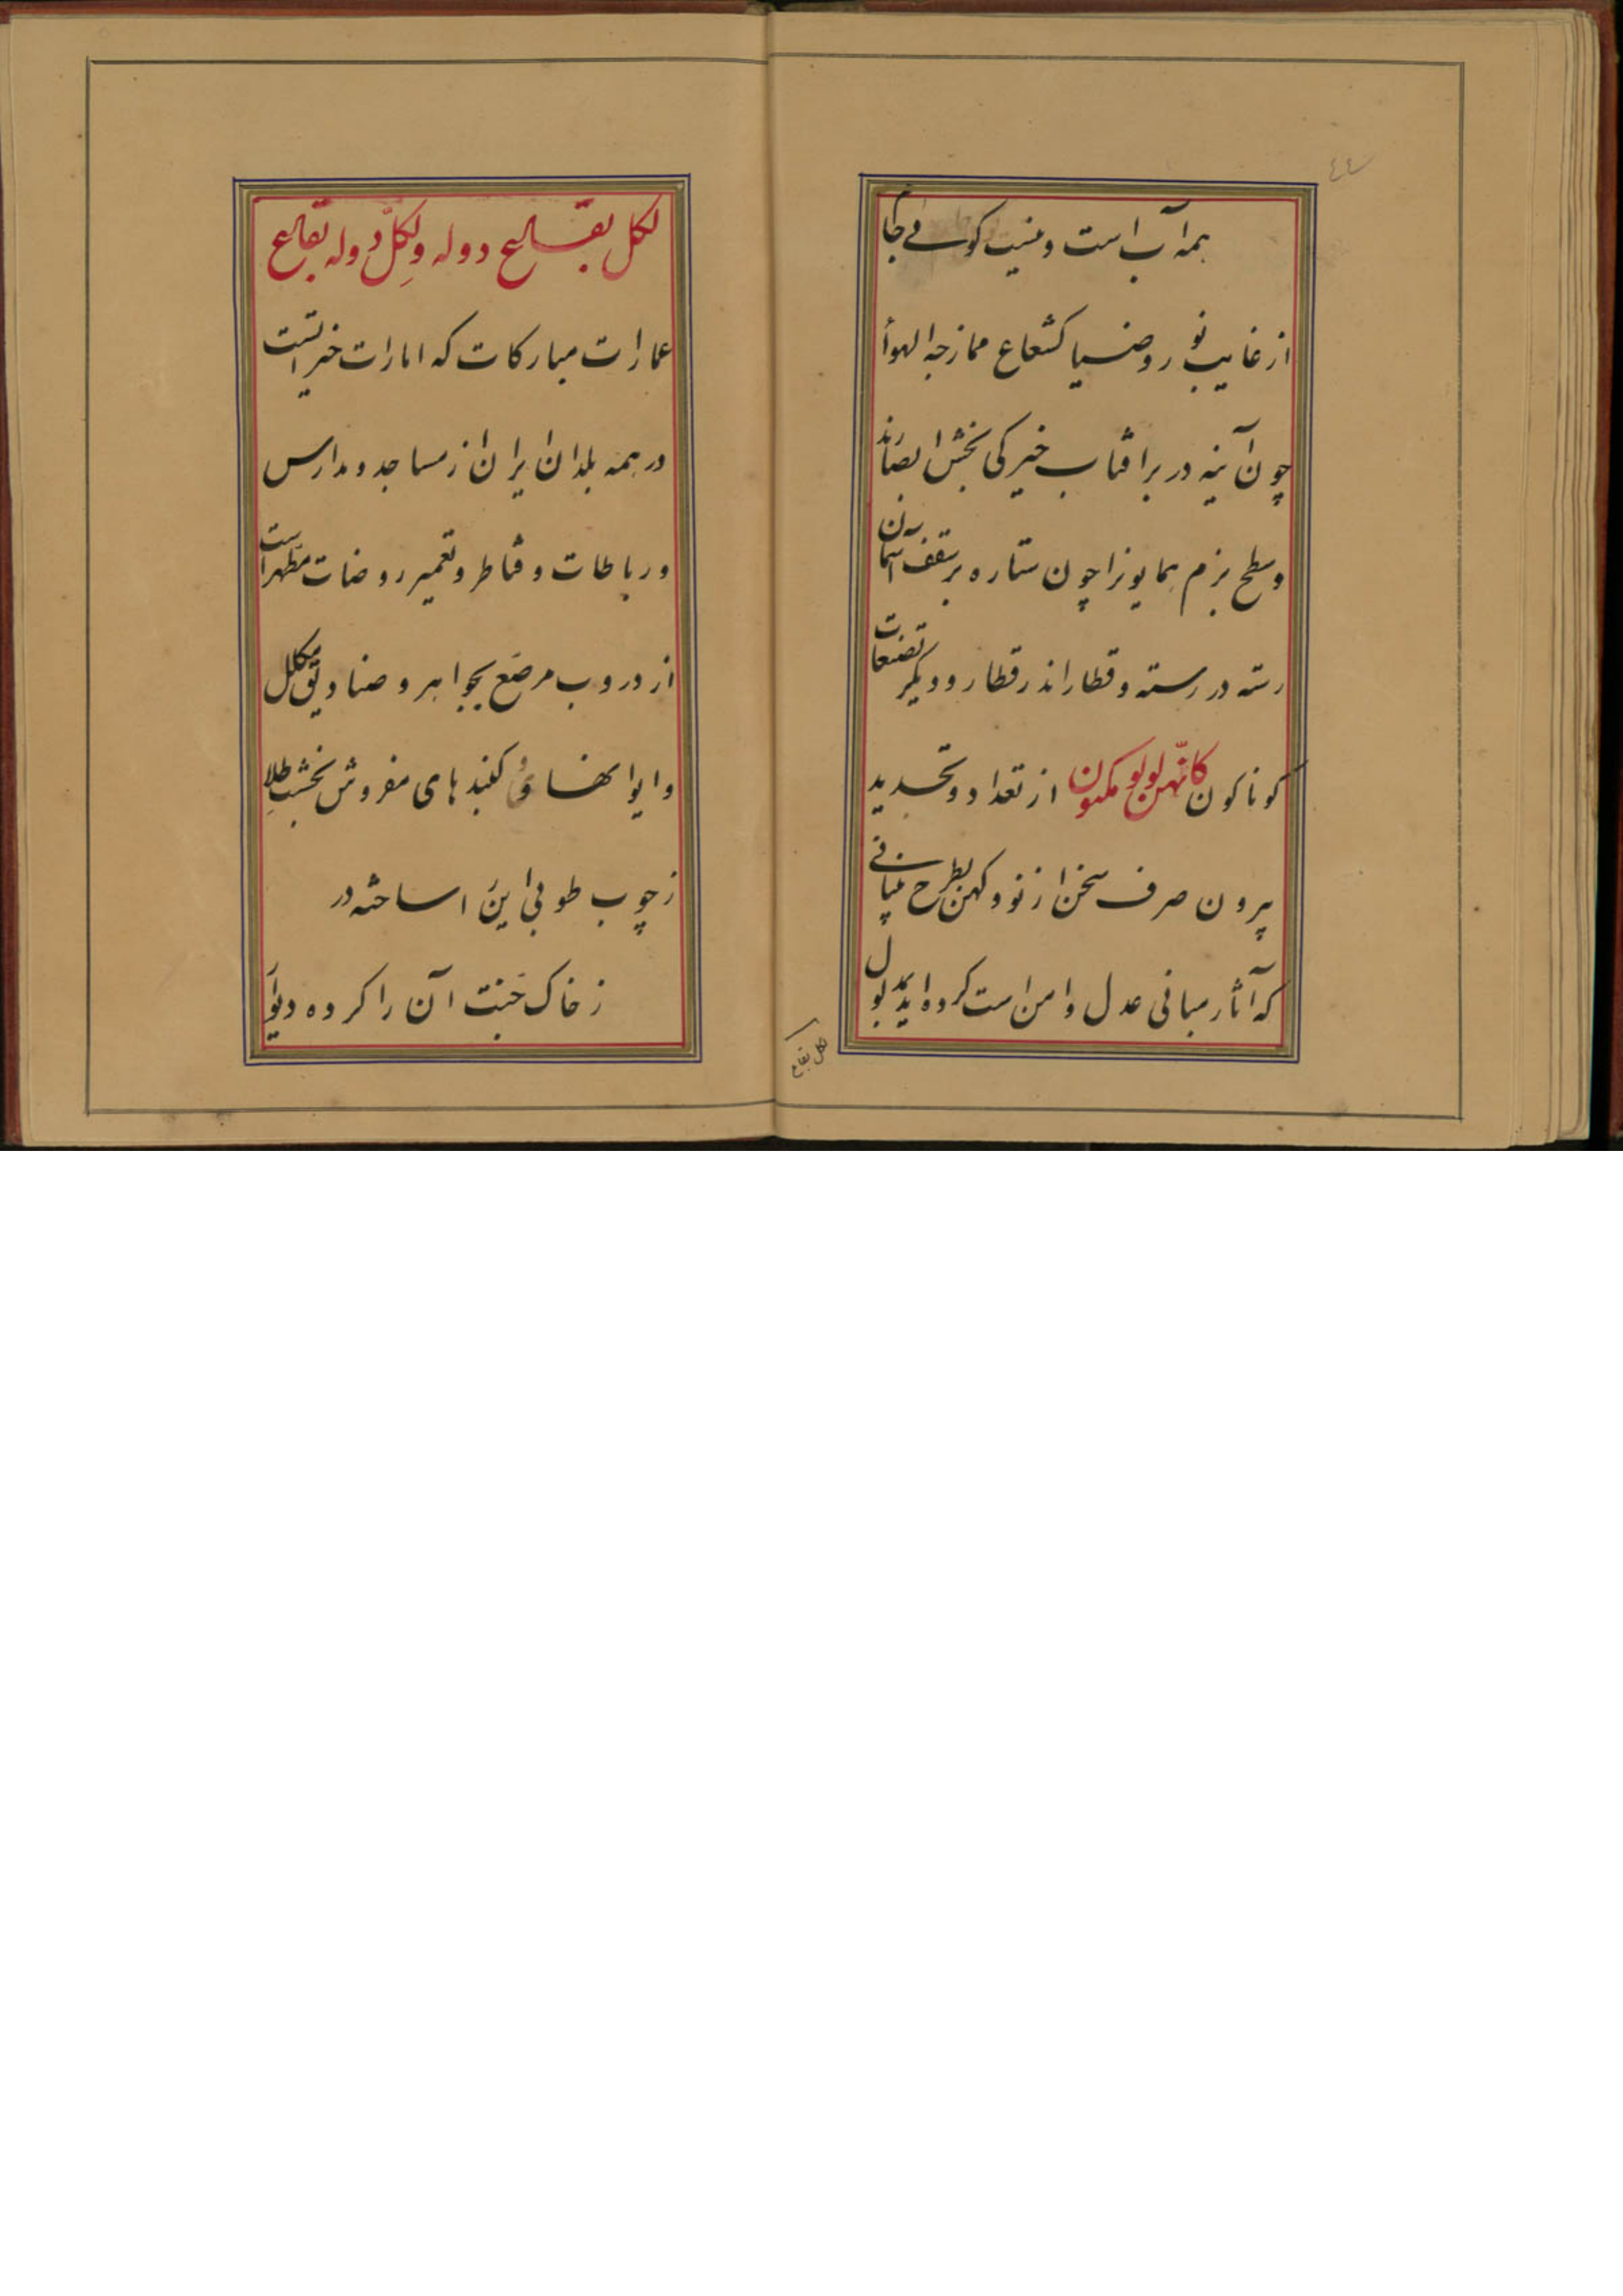 ٤٤
همه آبست و نیست کوسی جام
از غایب نور و ضیا کشعاع ممازجه الهوأ
چون آینه در بر افتاب خیرکی بخش ابصارند
و سطح بزم همایونرا چون ستاره بر سقف آسمان
رسته در رسته و قطار اندر قطار و دیگر تصنعات
کوناکون کانهن لولو مکنون از تعداد و تحدید
بیرون صرف سخن از نو و کهن بطرح مبانی
که آثار مبانی عدل و امن است کرده اید
لکل بقاع
لکل بقاع دوله ولکل دوله بقاع
عمارات مبارکات که امارات خیراتست
در همه بلدان ایران از مساجد و مدارس
و رباطات و قناطر و تعمیر روضات مطهرات
از دروب مرصع بجواهر و صنادیق مکلل
و ایوانها و کنبدهای مفروش بخشت طلا
ز چوب طوبی این را ساخته در
ز خاک جنت آن را کرده دیوار